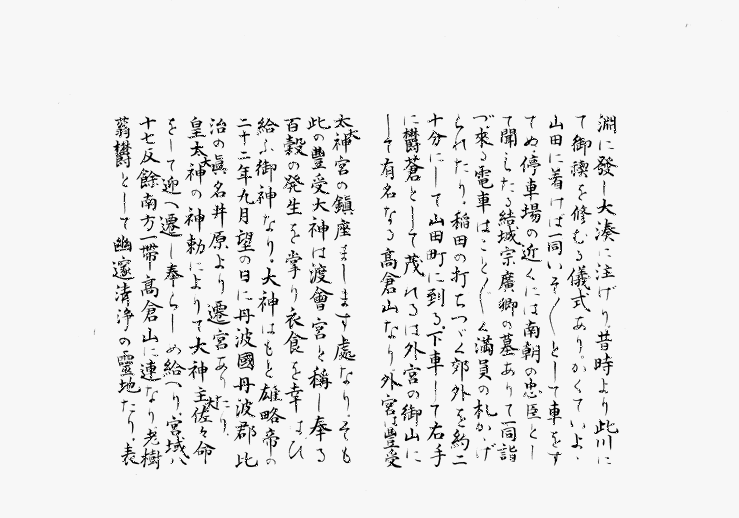 淵に發し大湊に注げり昔時より此川に
て御禊を修むる儀式ありかくていよ〱
山田に着けば一同いそ〱として車をす
てぬ停車場の近くには南朝の忠臣とし
て聞えたる結城宗廣卿の墓ありて一同詣
づ來る電車はこと〲く滿員の札かゝげ
られたり。稲田の打ちつゞく郊外を約二
十分にして山田町に到る、下車して右手
に欝蒼として茂れるは外宮の御山に
して有名なる高倉山なり外宮は豐受
太神宮の鎮座まします處なりそも
此の豐受大神は渡會宮と稱し奉る
百穀の発生を掌り衣食を幸はひ
給ふ御神なり。大神はもと雄略帝の
二十二年九月望の日に丹波國丹波郡比
治の眞名井原より遷宮ありたり
皇太神の神勅によりて大神主佐々命
をして迎へ遷し奉らしめ給へり宮域は
十七反餘南方一帶高倉山に連なり老樹
蓊欝として幽邃清浄の靈地たり。表